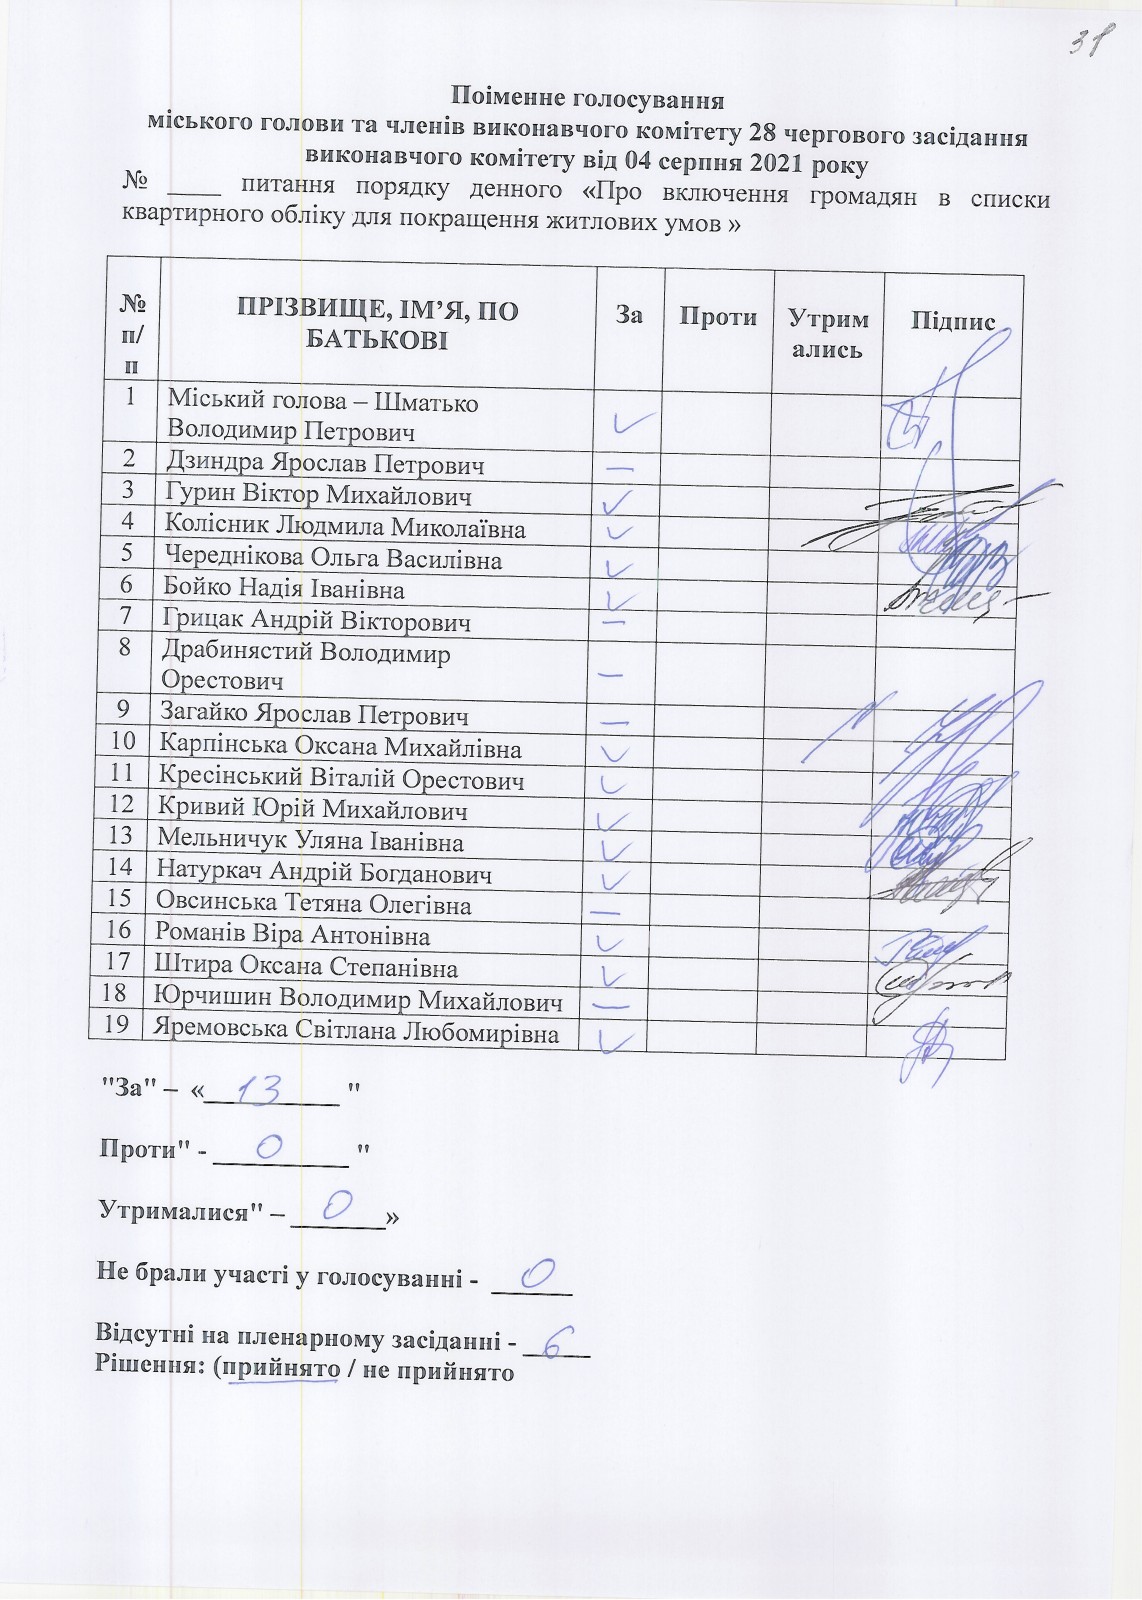 Поіменне голосування
міського голови та членів виконавчого комітету 28 чергового засідання
виконавчого комітету від 04 серпня 2021 року
№ ____ питання порядку денного «Про включення громадян в списки
квартирного обліку для покращення житлових умов »
№ п/п ПРІЗВИЩЕ, ІМ’Я, ПО БАТЬКОВІ За Проти Утримались Підпис
1 Міський голова – Шматько
Володимир Петрович ✓
2 Дзиндра Ярослав Петрович —
3 Гурин Віктор Михайлович ✓
4 Колісник Людмила Миколаївна ✓
5 Череднікова Ольга Василівна ✓
6 Бойко Надія Іванівна ✓
7 Грицак Андрій Вікторович —
8 Драбинястий Володимир
Орестович —
9 Загайко Ярослав Петрович —
10 Карпінська Оксана Михайлівна ✓
11 Кресінський Віталій Орестович ✓
12 Кривий Юрій Михайлович ✓
13 Мельничук Уляна Іванівна ✓
14 Натуркач Андрій Богданович ✓
15 Овсинська Тетяна Олегівна —
16 Романів Віра Антонівна ✓
17 Штира Оксана Степанівна ✓
18 Юрчишин Володимир Михайлович —
19 Яремовська Світлана Любомирівна ✓
"За" – «13 "
Проти" - 0 "
Утрималися" – 0»
Не брали участі у голосуванні - 0
Відсутні на пленарному засіданні - 6
Рішення: (прийнято / не прийнято